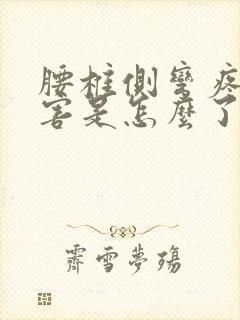 腰椎側彎疼
害是怎麼了
霽雪夢殤